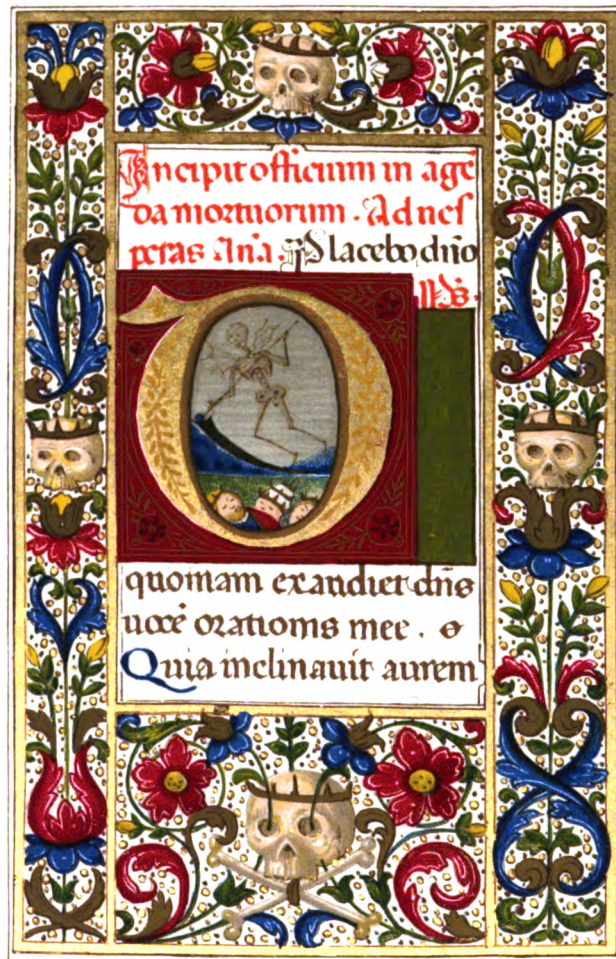 Incipit officium in age
da mortuorum. Ad ves
peras Aña. Placebo dño
D
quoniam exaudiet dñs
vocē orationis mee. s
Quia inclinavit aurem